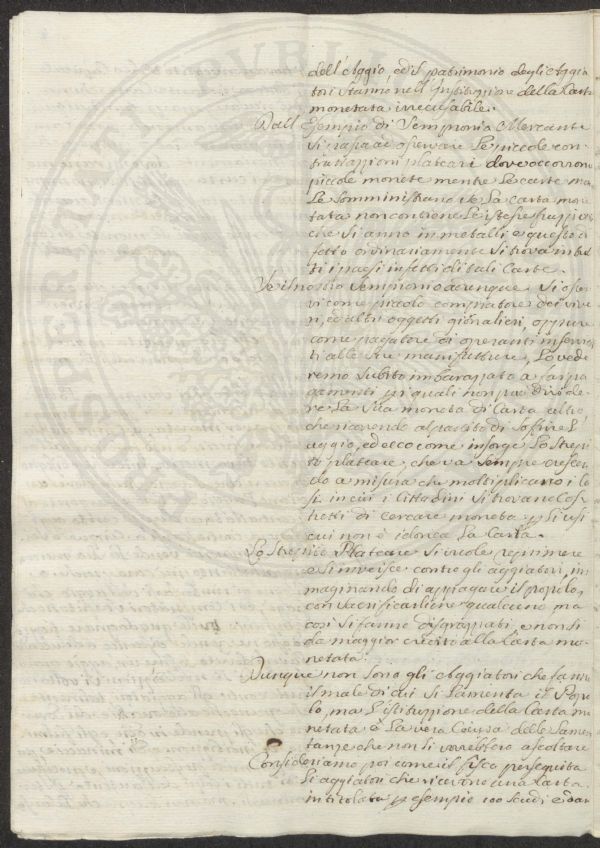 dell'Aggio, ed il patrimonio degli Aggia
tori stanno nell'Instituzione della Carta
monetata irrecusabile.
Dall'Esempio di Sempronio Mercante
si passa ad osservare le piccole con-
trattazioni plateari dove occorrono
piccole monete mentre le carte ma
le somministrano se la carta mone
tata non contiene le istesse frazioni
che si anno in metalli e questo di
fetto ordinariamente si trova in tut
ti i paesi infetti di tali Carte.
Se il nostro Sempronio dunque si ser
vi come piccolo compratore dei vive
ri, ed altri oggetti giornalieri, oppure
come pagatore di operanti inservien
ti alle sue manifatture, lo vede
remo subito imbarazzato a far pa
gamenti per quali non può divide
re la sua moneta di Carta altro
che ricorrendo al partito di soffrire l'
aggio, ed ecco come insorge lo strepi
to plateare, che va sempre crescen
do a misura che moltiplicano i ca
si in cui i Cittadini si trovano Cos
tretti di cercare moneta per li usi
cui non è idonea la Carta.
Lo strepito Plateare si vuole reprimere
e si inveisce contro gli aggiatori, im
maginando di appagare il popolo,
con sacrificarliene qualcuno ma
così si fanno disgraziati e non si
da maggior credito alla Carta mo
netata.
Dunque non sono gli Aggiatori che fanno
il male di cui si lamenta il Popo
lo, ma l'istituzione della Carta mo
netata è la vera Causa delle lamen
tanze che non si vorrebbero ascoltare
Consideriamo poi come il fisco perseguita
li aggiatori che ricevono una Carta
intitolata per esempio 100 scudi e dan